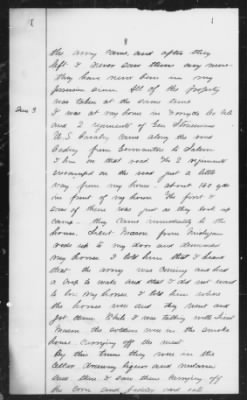 8
the army came, and after they
left I never saw them any more.
they have never been in my
possession since. All of the property
was taken at the same time
I was at my home in
and 2 regiments of Gen Stoneman's
U.S. Cavalry came along the road
leading from to Salem
I live on that road. The 2 regiments
encamped on the road just a little
way from my house. about 150 yds
in front of my house. The first I
saw of them was just as they rode up
came. they came immediately to the
house. Lieut. Mason from Michigan
rode up to my door and demanded
my horses. I told him that I heard
that the army was coming and had
a crop to make and that I did not want
to lose my horses. I told him where
the horses were and they went and
got them. While I was talking with Lieut
Mason the soldiers were in the smoke
house carrying off the meat
By this time they were in the
cellar, drawing liquor and molasses
and then I saw them carrying off
the corn and fodder and oats